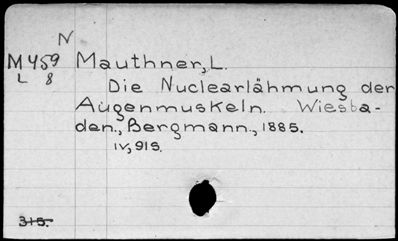 N
M459 Mauthner, L.
L 8 Die Nuclearlähmung der
Augenmuskeln. Wiesba-
den., Bergmann., 1885.
IV, 919.
315.